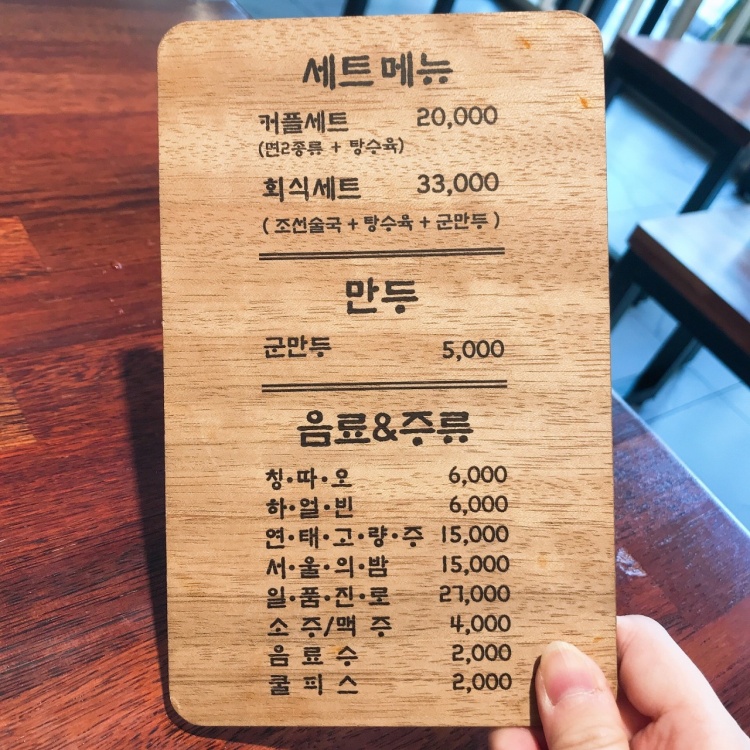 세트메뉴
커플세트 20,000
(면2종류 + 탕수육)
회식세트 33,000
( 조선술국 + 탕수육 + 군만두 )
만두
군만두 5,000
음료&주류
칭·따·오 6,000
하·얼·빈 6,000
연·태·고·량·주 15,000
서·울·의·밤 15,000
일·품·진·로 27,000
소 주/맥 주 4,000
음 료 수 2,000
쿨 피 스 2,000